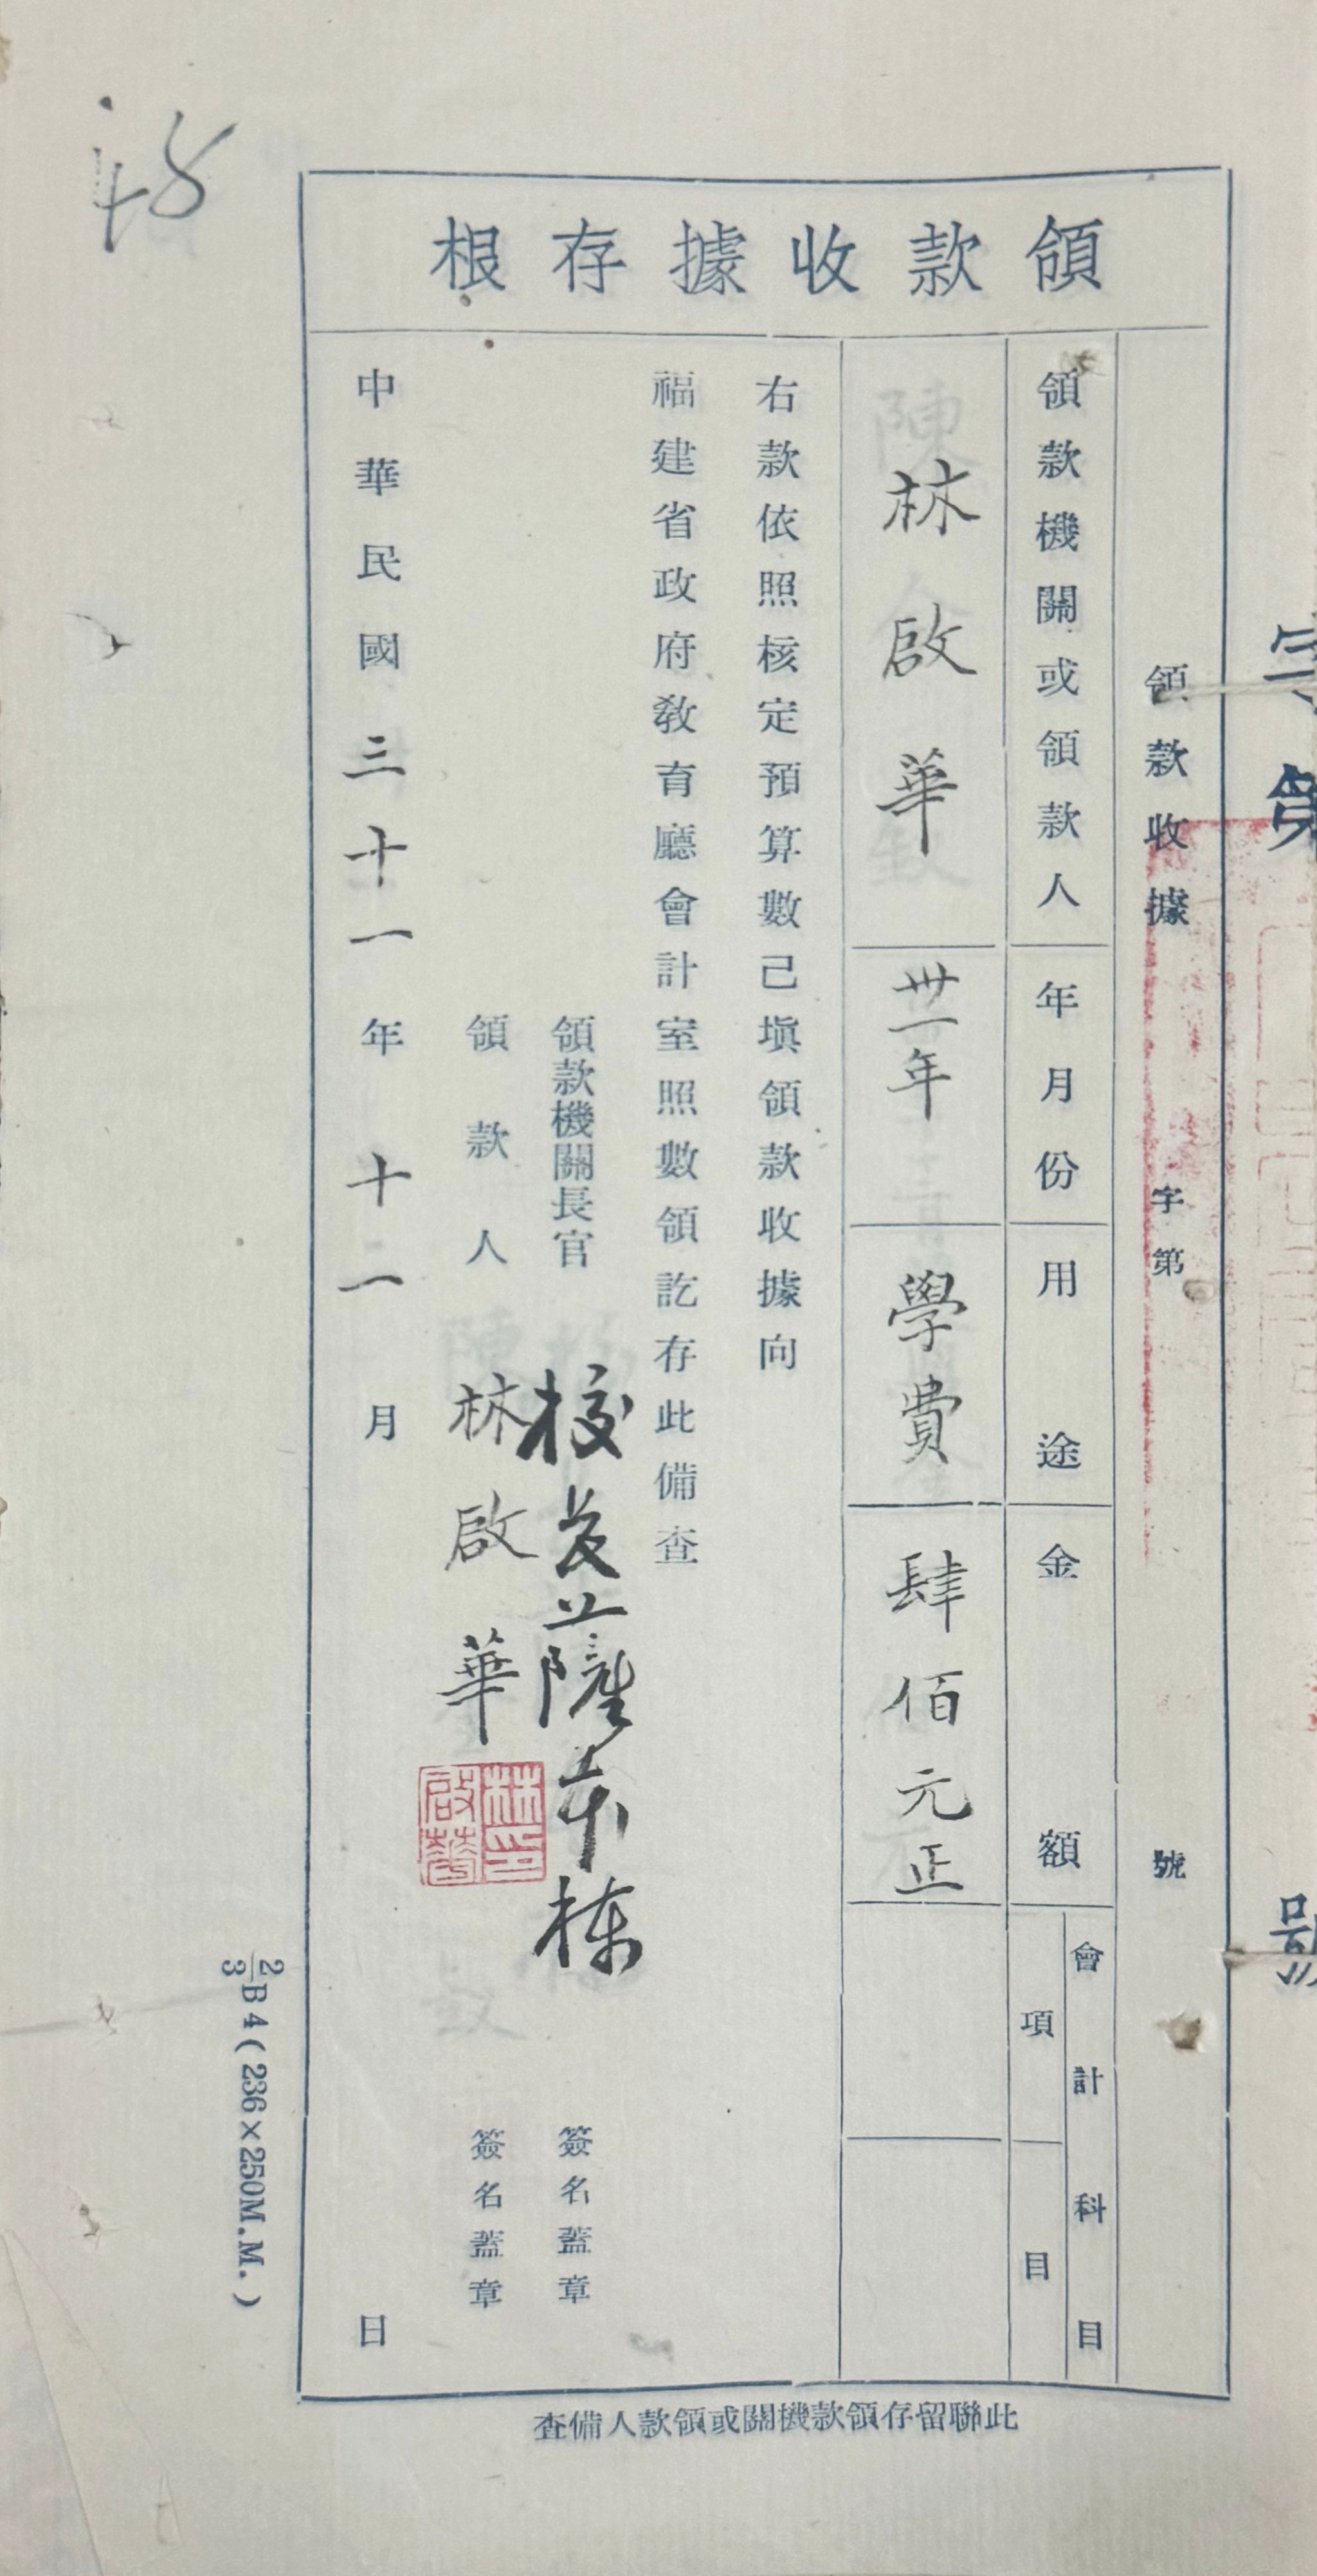 48
領款收據存根
領款收據 字第 號
領款機關或領款人 年月份 用途 金額 會計科目 項 目
林啟華 卅一年 學費 肆佰元正
右款依照核定預算數已塡領款收據向
福建省政府教育廳會計室照數領訖存此備查
領款機關長官 校長薩本栋 簽名蓋章
領款人 林啟華 簽名蓋章
林印啟華
中華民國三十一年十二月 日
此聯留存領款機關或領款人備查
2/3 B4(236×250M.M.)
字第 號